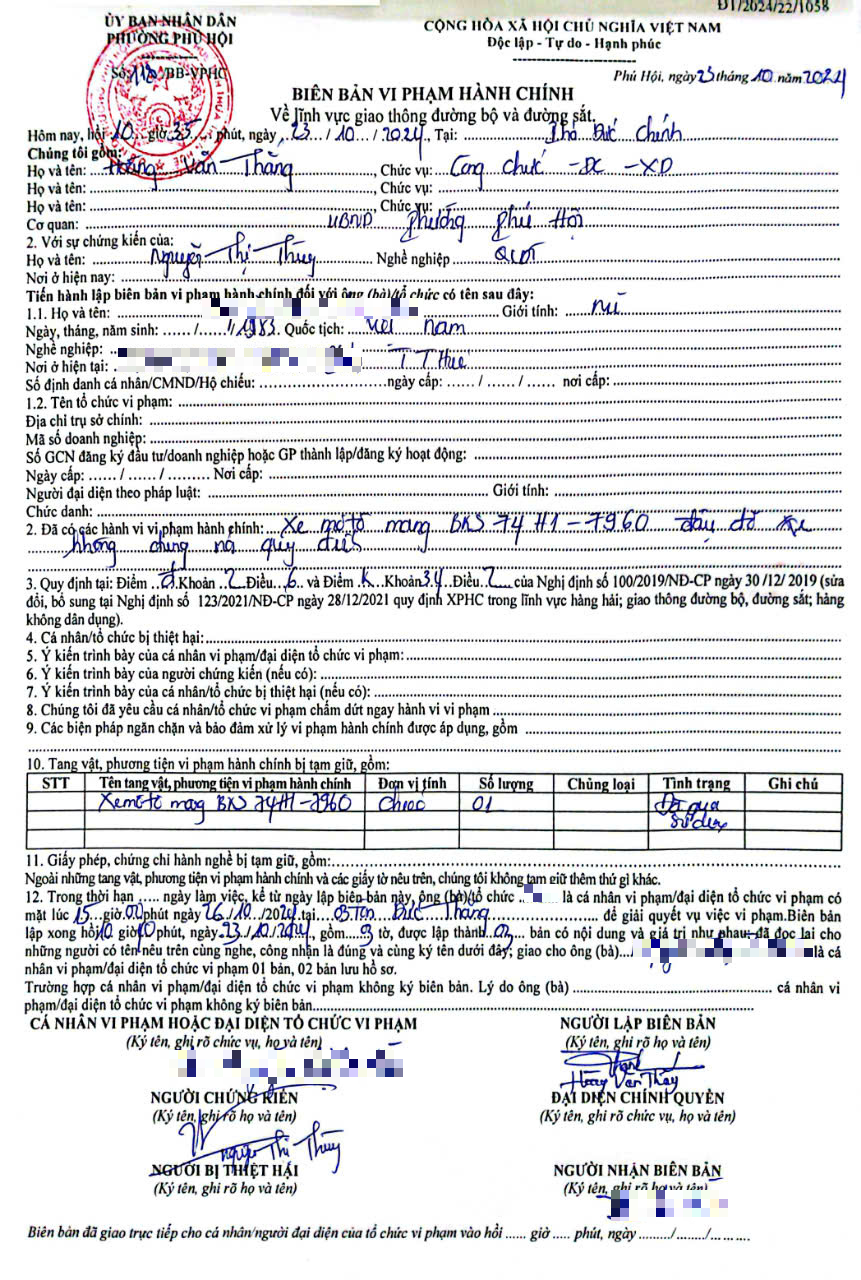 ĐT/2024/22/1058
ỦY BAN NHÂN DÂN
PHƯỜNG PHÚ HỘI
CỘNG HÒA XÃ HỘI CHỦ NGHĨA VIỆT NAM
Độc lập - Tự do - Hạnh phúc
Số: 118/BB-VPHC
Phú Hội, ngày 23 tháng 10 năm 2024
BIÊN BẢN VI PHẠM HÀNH CHÍNH
Về lĩnh vực giao thông đường bộ và đường sắt.
Hôm nay, hồi 10 giờ 35 phút, ngày 23 / 10 / 2024, Tại: Phó Đức Chính
Chúng tôi gồm:
Họ và tên: Hoàng Văn Thắng, Chức vụ: Công chức - ĐC - XD
Họ và tên: , Chức vụ:
Họ và tên: , Chức vụ:
Cơ quan: UBND phường Phú Hội
2. Với sự chứng kiến của:
Họ và tên: Nguyễn Thị Thùy Nghề nghiệp QLĐT
Nơi ở hiện nay:
Tiến hành lập biên bản vi phạm hành chính đối với ông (bà)/tổ chức có tên sau đây:
1.1. Họ và tên: Giới tính: nữ
Ngày, tháng, năm sinh: ...... / ...... / 1983. Quốc tịch: Việt nam
Nghề nghiệp:
Nơi ở hiện tại: TT Huế
Số định danh cá nhân/CMND/Hộ chiếu: ngày cấp: ...... / ...... / ...... nơi cấp:
1.2. Tên tổ chức vi phạm:
Địa chỉ trụ sở chính:
Mã số doanh nghiệp:
Số GCN đăng ký đầu tư/doanh nghiệp hoặc GP thành lập/đăng ký hoạt động:
Ngày cấp: ...... / ...... / ......... Nơi cấp:
Người đại diện theo pháp luật: Giới tính:
Chức danh:
2. Đã có các hành vi vi phạm hành chính: Xe mô tô mang BKS 74H1-7960 đậu đỗ xe
không đúng quy định
3. Quy định tại: Điểm đ Khoản 2 Điều 6 và Điểm k Khoản 3,4 Điều 2 của Nghị định số 100/2019/NĐ-CP ngày 30 /12/ 2019 (sửa
đổi, bổ sung tại Nghị định số 123/2021/NĐ-CP ngày 28/12/2021 quy định XPHC trong lĩnh vực hàng hải; giao thông đường bộ, đường sắt; hàng
không dân dụng).
4. Cá nhân/tổ chức bị thiệt hại:
5. Ý kiến trình bày của cá nhân vi phạm/đại diện tổ chức vi phạm:
6. Ý kiến trình bày của người chứng kiến (nếu có):
7. Ý kiến trình bày của cá nhân/tổ chức bị thiệt hại (nếu có):
8. Chúng tôi đã yêu cầu cá nhân/tổ chức vi phạm chấm dứt ngay hành vi vi phạm
9. Các biện pháp ngăn chặn và bảo đảm xử lý vi phạm hành chính được áp dụng, gồm
10. Tang vật, phương tiện vi phạm hành chính bị tạm giữ, gồm:
STT Tên tang vật, phương tiện vi phạm hành chính Đơn vị tính Số lượng Chủng loại Tình trạng Ghi chú
Xe mô tô mang BKS 74H1-7960 Chiếc 01 Đã qua
sử dụng
11. Giấy phép, chứng chỉ hành nghề bị tạm giữ, gồm:
Ngoài những tang vật, phương tiện vi phạm hành chính và các giấy tờ nêu trên, chúng tôi không tạm giữ thêm thứ gì khác.
12. Trong thời hạn ..... ngày làm việc, kể từ ngày lập biên bản này, ông (bà)/tổ chức là cá nhân vi phạm/đại diện tổ chức vi phạm có
mặt lúc 15 giờ 00 phút ngày 26/10/2024 tại Đức Thắng để giải quyết vụ việc vi phạm.Biên bản
lập xong hồi 10 giờ 40 phút, ngày 23/10/2024, gồm tờ, được lập thành 02 bản có nội dung và giá trị như nhau; đã đọc lại cho
những người có tên nêu trên cùng nghe, công nhận là đúng và cùng ký tên dưới đây; giao cho ông (bà) là cá
nhân vi phạm/đại diện tổ chức vi phạm 01 bản, 02 bản lưu hồ sơ.
Trường hợp cá nhân vi phạm/đại diện tổ chức vi phạm không ký biên bản. Lý do ông (bà) cá nhân vi
phạm/đại diện tổ chức vi phạm không ký biên bản
CÁ NHÂN VI PHẠM HOẶC ĐẠI DIỆN TỔ CHỨC VI PHẠM
(Ký tên, ghi rõ chức vụ, họ và tên)
NGƯỜI LẬP BIÊN BẢN
(Ký tên, ghi rõ họ và tên)
Hoàng Văn Thắng
NGƯỜI CHỨNG KIẾN
(Ký tên, ghi rõ họ và tên)
Nguyễn Thị Thùy
ĐẠI DIỆN CHÍNH QUYỀN
(Ký tên, ghi rõ chức vụ, họ và tên)
NGƯỜI BỊ THIỆT HẠI
(Ký tên, ghi rõ họ và tên)
NGƯỜI NHẬN BIÊN BẢN
(Ký tên, ghi rõ họ và tên)
Biên bản đã giao trực tiếp cho cá nhân/người đại diện của tổ chức vi phạm vào hồi ...... giờ ..... phút, ngày ......../......../..........